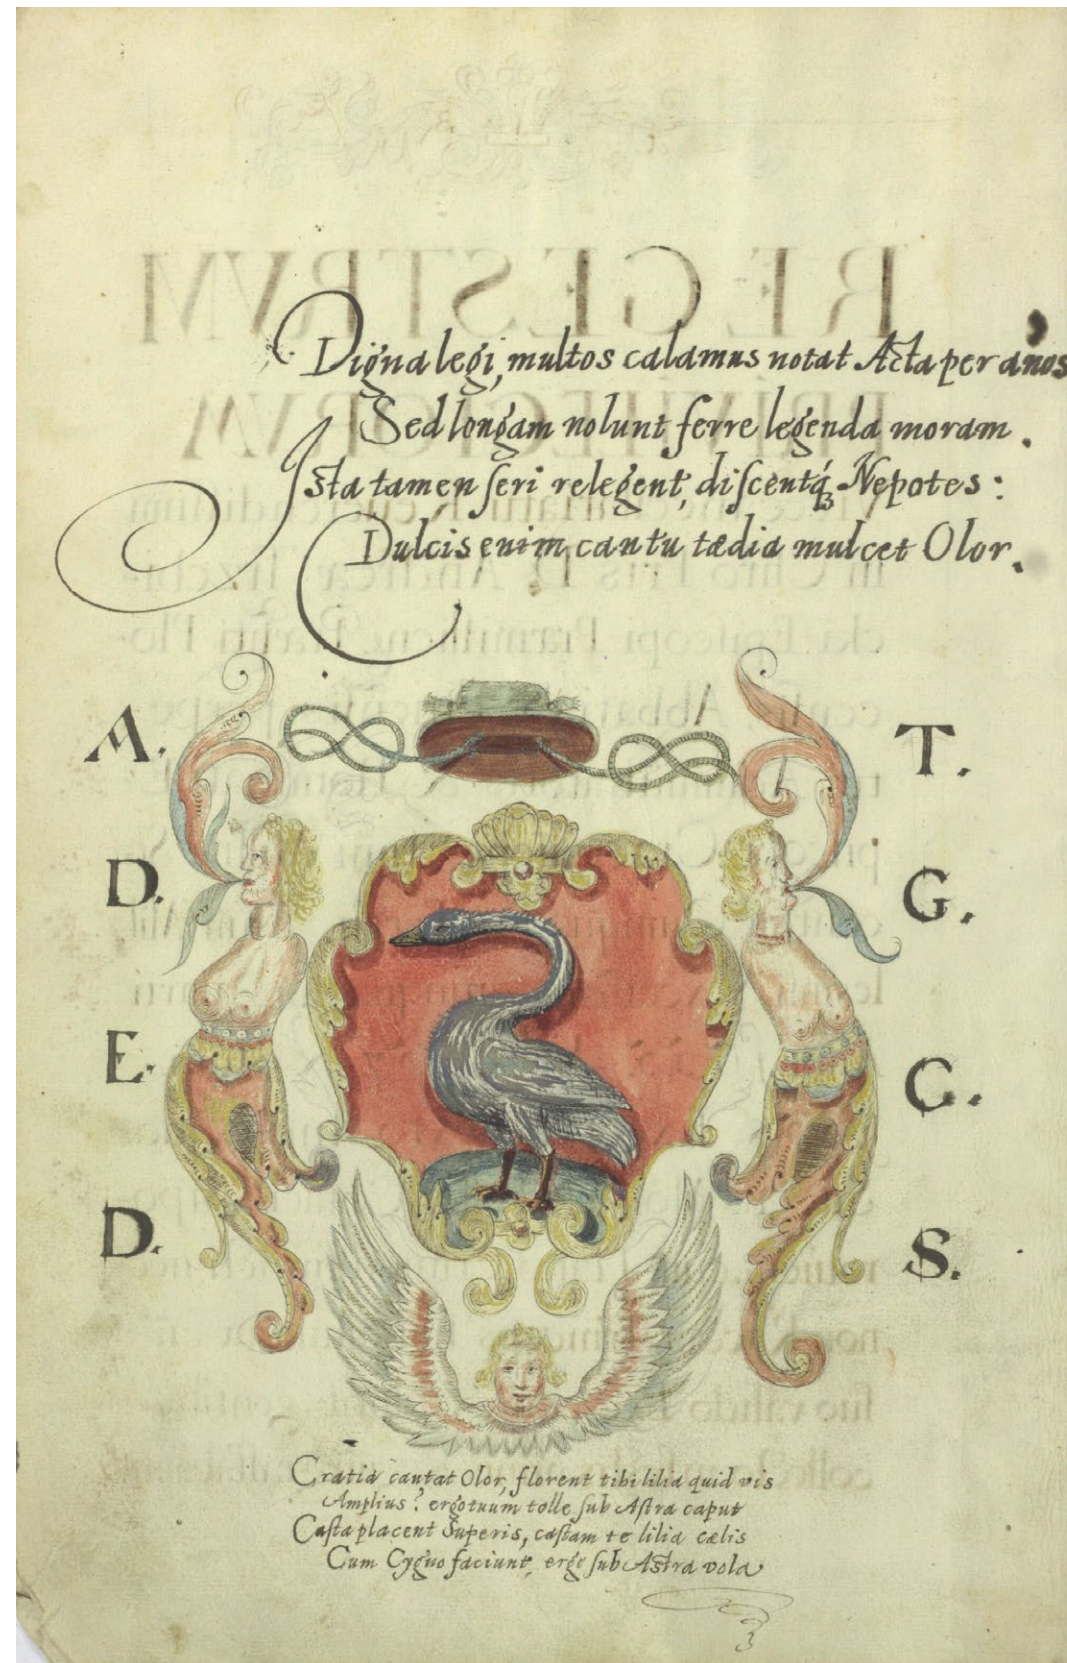 Digna legi, multos calamus notat Acta per an̄os
Sed longam nolunt ferre legenda moram.
Ista tamen ſeri relegent, diſcentq́ꝫ Nepotes:
Dulcis enim cantu tædia mulcet Olor.
A. T.
D. G.
E. C.
D. S.
Cratia cantat Olor, florent tibi lilia quid vis
Amplius? ergo tuum tolle ſub Aſtra caput
Caſta placent Superis, caſtam te lilia cælis
Cum Cygno faciunt, ergo ſub Aſtra vola